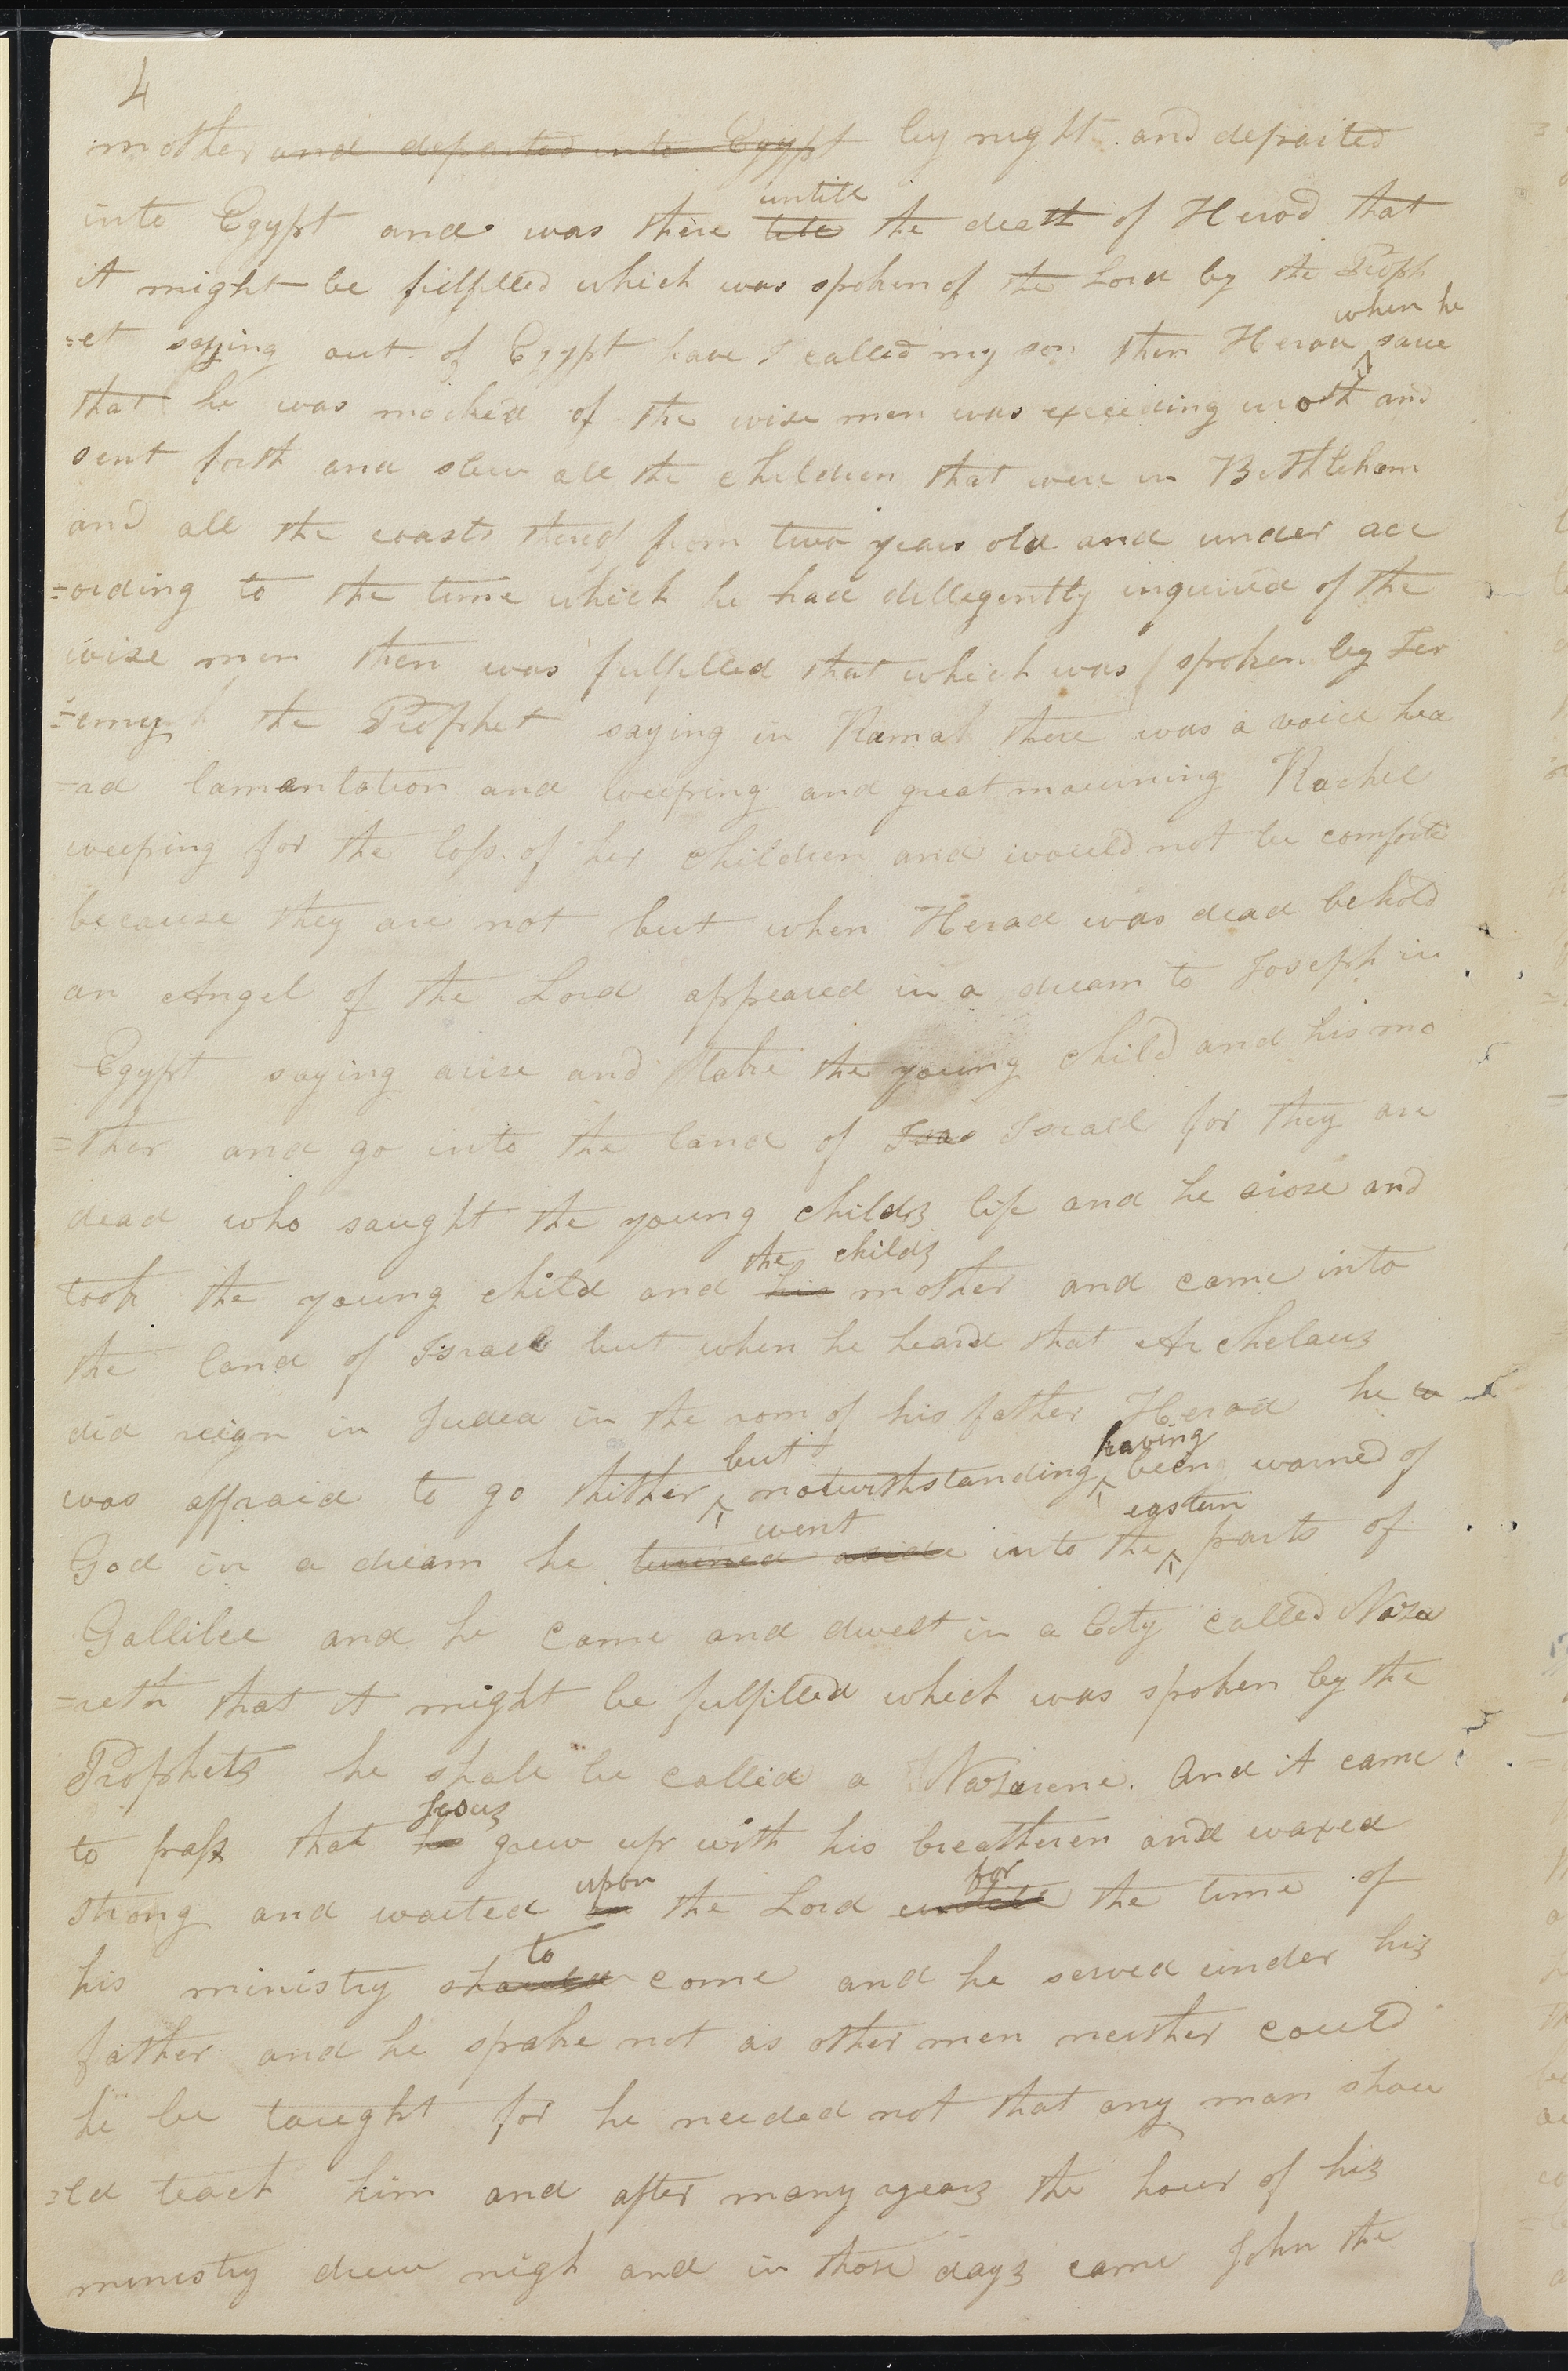 4
mother and departed into Egypt by night and departed
untill
into Egypt and was there till the death of Herod that
it might be fulfilled which was spoken of the Lord by the Proph
when he
=et saying out of Egypt have I called my son then Herod saw
that he was mocked of the wise men was exceeding wroth and
sent forth and slew all the children that were in Bethleham
and all the coasts thereof from two years old and under acc
=ording to the time which he had dillegently inquired of the
wise men then was fulfilled that which was spoken by Jer
=emy the Prophet saying in Ramah there was a voice hea
=ad lamentation and weeping and great mourning Rachel
weeping for the loss of her children and would not be comforte
because they are not but when Herod was dead behold
an Angel of the Lord appeared in a dream to Joseph in
Egypt saying arise and take the young child and his mo
=ther and go into the land of Isra Israel for they are
dead who saught the young childs life and he arose and
the childs
took the young child and his mother and came into
the land of Israel but when he heard that Archelaus
did reign in Judea in the rom of his father Herod he w
but having
was affraid to go thither notwithstanding being warned of
went eastern
God in a dream he turned aside into the parts of
Gallilee and he came and dwelt in a City called Naza
=reth that it might be fulfilled which was spoken by the
Prophets he shall be called a Nazarene. And it came
Jesus
to pass that he grew up with his breatheren and waxed
upon for
strong and waited on the Lord untill the time of
to
his ministry should come and he served under his
father and he spake not as other men neither could
he be taught for he needed not that any man shou
=ld teach him and after many years the hour of his
ministry drew nigh and in those days came John the